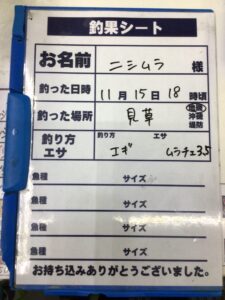 釣果シート
お名前 ニシムラ 様
釣った日時 11月15日18時頃
釣った場所 見草 地磯 沖磯 堤防
釣り方 エサ 釣り方 エギ エサ ムラチェ3.5
魚種 サイズ
魚種 サイズ
魚種 サイズ
魚種 サイズ
お持ち込みありがとうございました。